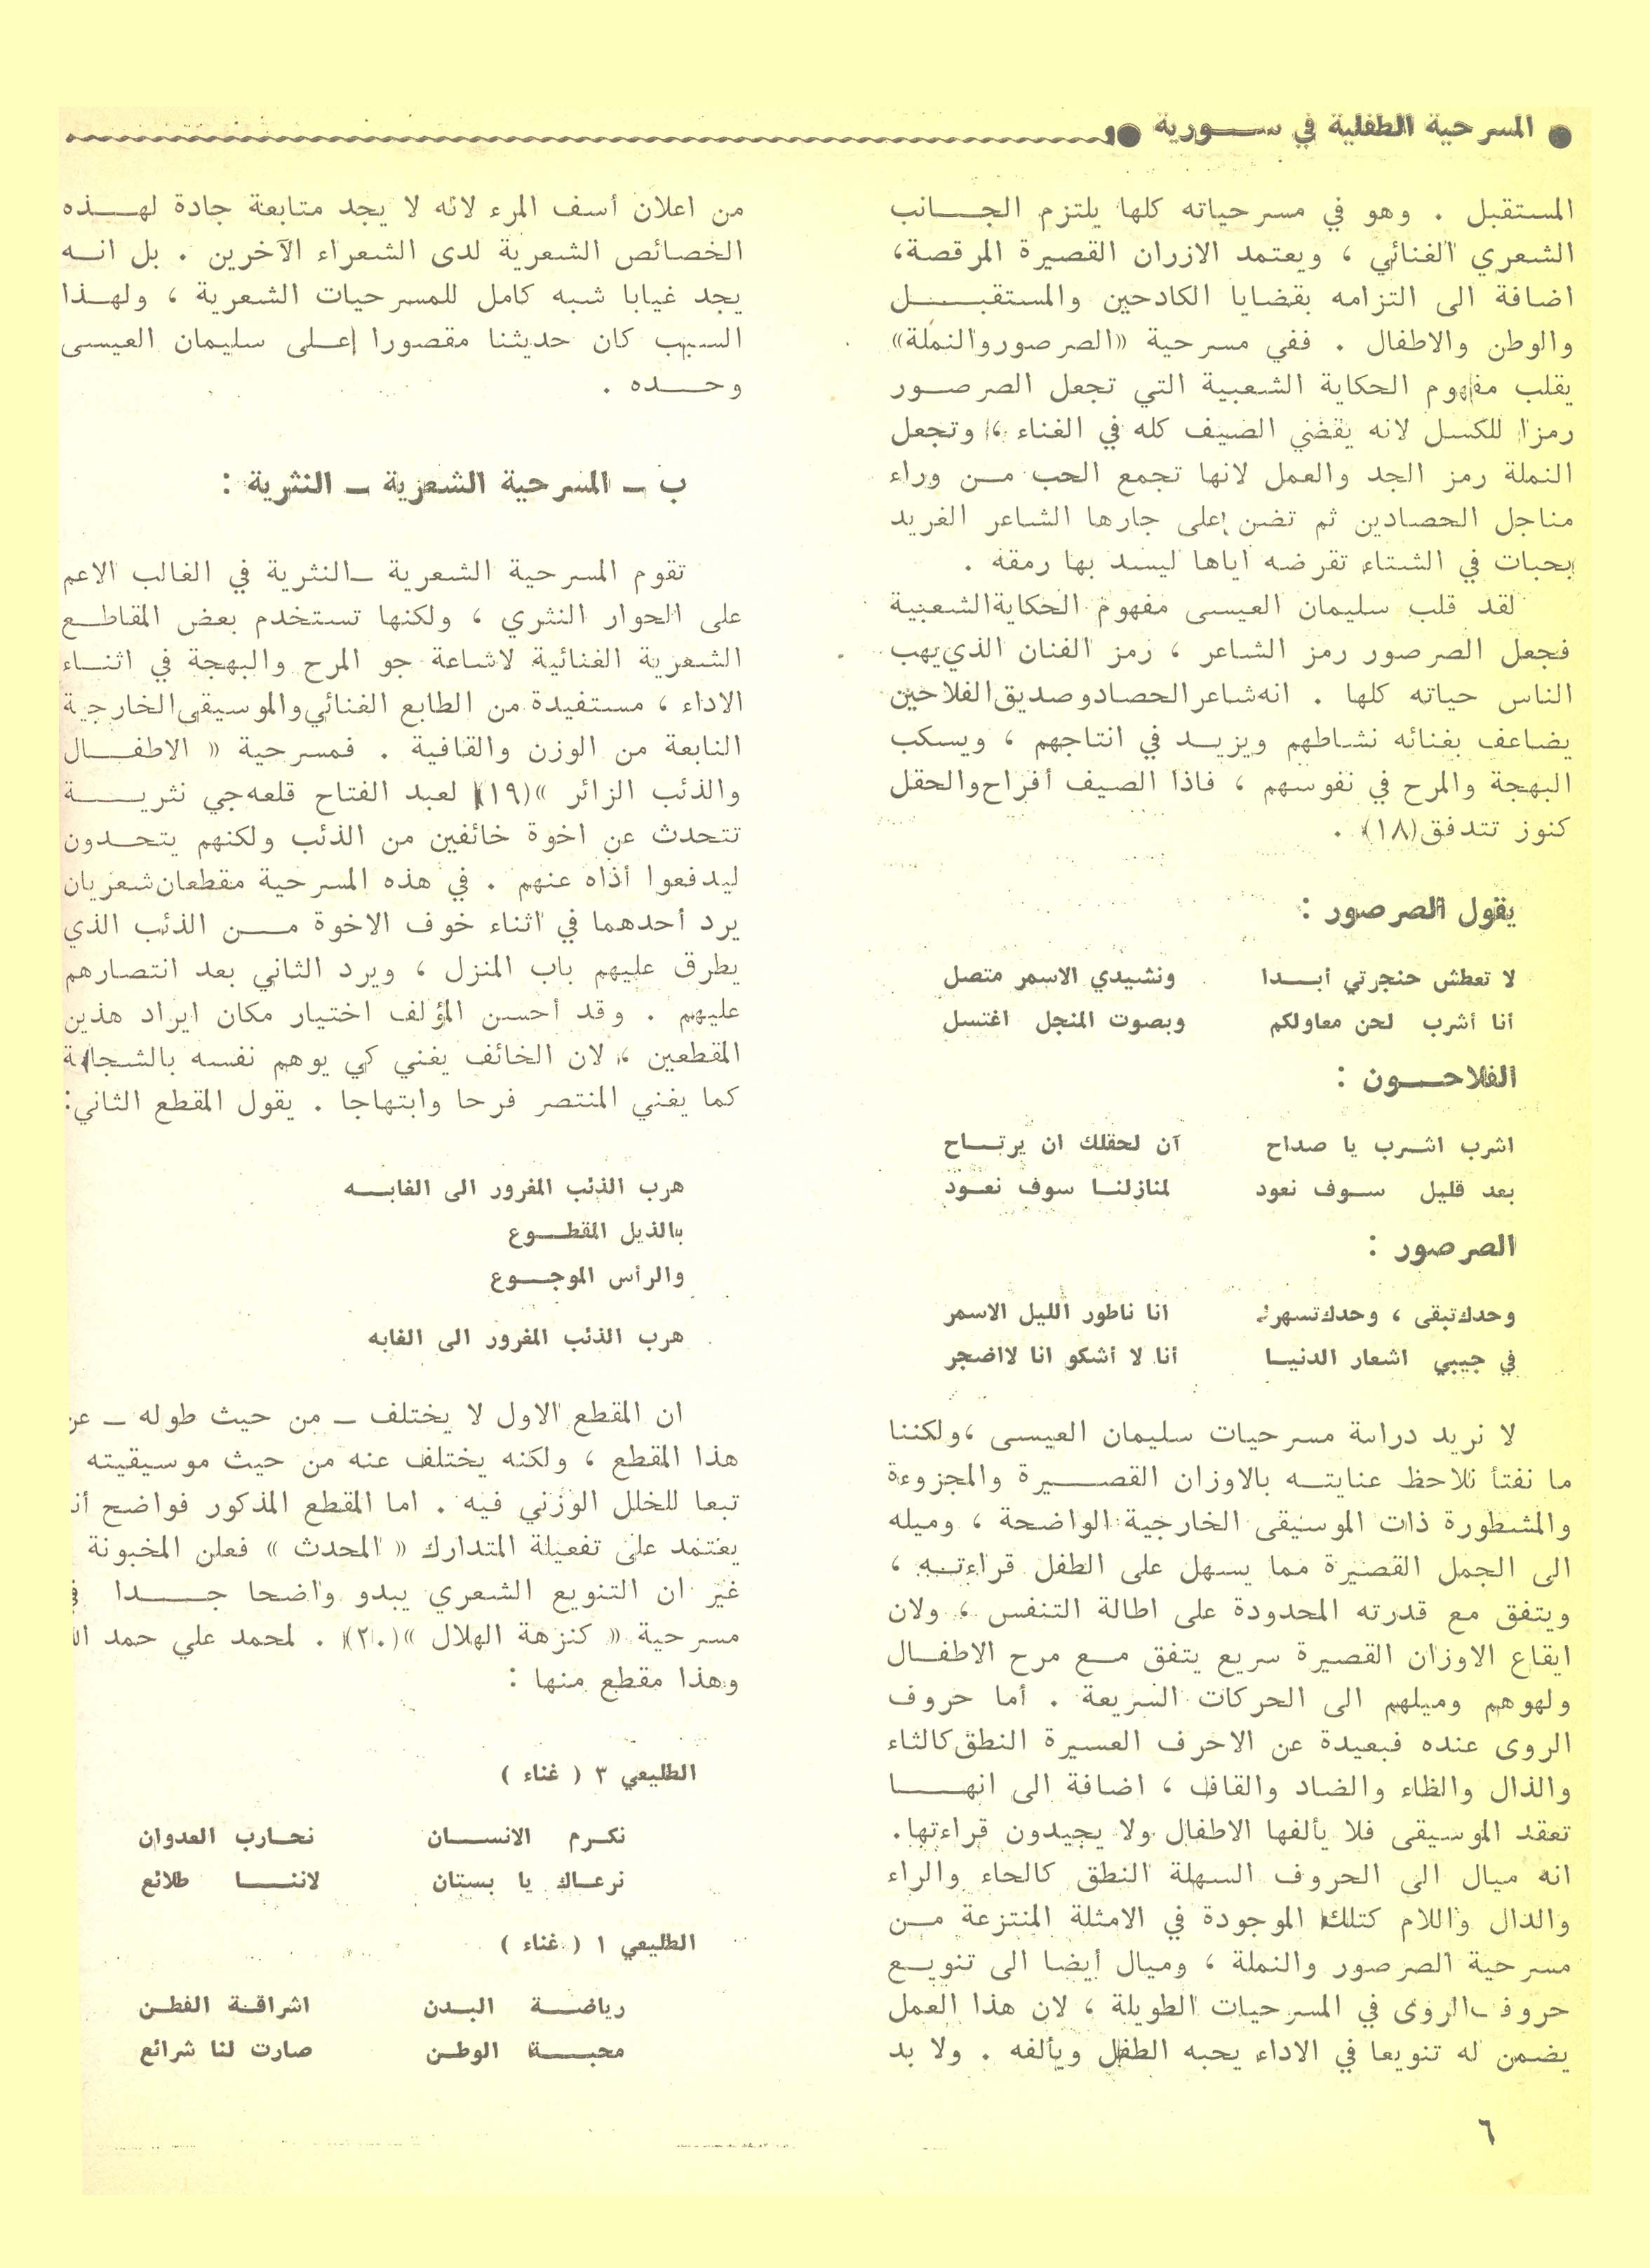 ● المسرحية الطفلية في سـورية ●
المستقبل . وهو في مسرحياته كلها يلتزم الجانب
الشعري الغنائي ، ويعتمد الازران القصيرة المرقصة،
اضافة الى التزامه بقضايا الكادحين والمستقبل
والوطن والاطفال . ففي مسرحية «الصرصور والنملة»
يقلب مفهوم الحكاية الشعبية التي تجعل الصرصور
رمزا للكسل لانه يقضي الصيف كله في الغناء ، وتجعل
النملة رمز الجد والعمل لانها تجمع الحب من وراء
مناجل الحصادين ثم تضن على جارها الشاعر الغريد
بحبات في الشتاء تقرضه اياها ليسد بها رمقه .
لقد قلب سليمان العيسى مفهوم الحكاية الشعبية
فجعل الصرصور رمز الشاعر ، رمز الفنان الذي يهب
الناس حياته كلها . انه شاعر الحصاد وصديق الفلاحين
يضاعف بغنائه نشاطهم ويزيد في انتاجهم ، ويسكب
البهجة والمرح في نفوسهم ، فاذا الصيف أفراح والحقل
كنوز تتدفق(١٨) .
يقول الصرصور :
لا تعطش حنجرتي أبدا ونشيدي الاسمر متصل
أنا أشرب لحن معاولكم وبصوت المنجل اغتسل
الفلاحون :
اشرب اشرب يا صداح آن لحقلك ان يرتاح
بعد قليل سوف نعود لمنازلنا سوف نعود
الصرصور :
وحدك تبقى ، وحدك تسهر انا ناطور الليل الاسمر
في جيبي اشعار الدنيا أنا لا أشكو انا لا اضجر
لا نريد دراسة مسرحيات سليمان العيسى ،ولكننا
ما نفتأ نلاحظ عنايته بالاوزان القصيرة والمجزوءة
والمشطورة ذات الموسيقى الخارجية الواضحة ، وميله
الى الجمل القصيرة مما يسهل على الطفل قراءته ،
ويتفق مع قدرته المحدودة على اطالة التنفس ، ولان
ايقاع الاوزان القصيرة سريع يتفق مع مرح الاطفال
ولهوهم وميلهم الى الحركات السريعة . أما حروف
الروى عنده فبعيدة عن الاحرف العسيرة النطق كالثاء
والذال والظاء والضاد والقاف ، اضافة الى انها
تعقد الموسيقى فلا يألفها الاطفال ولا يجيدون قراءتها.
انه ميال الى الحروف السهلة النطق كالحاء والراء
والدال واللام كتلك الموجودة في الامثلة المنتزعة من
مسرحية الصرصور والنملة ، وميال أيضا الى تنويع
حروف الروى في المسرحيات الطويلة ، لان هذا العمل
يضمن له تنويعا في الاداء يحبه الطفل ويألفه . ولا بد
من اعلان أسف المرء لانه لا يجد متابعة جادة لهذه
الخصائص الشعرية لدى الشعراء الآخرين . بل انه
يجد غيابا شبه كامل للمسرحيات الشعرية ، ولهذا
السبب كان حديثنا مقصورا على سليمان العيسى
وحده .
ب ـ المسرحية الشعرية ـ النثرية :
تقوم المسرحية الشعرية ـ النثرية في الغالب الاعم
على الحوار النثري ، ولكنها تستخدم بعض المقاطع
الشعرية الغنائية لاشاعة جو المرح والبهجة في اثناء
الاداء ، مستفيدة من الطابع الغنائي والموسيقى الخارجية
النابعة من الوزن والقافية . فمسرحية « الاطفال
والذئب الزائر »(١٩) لعبد الفتاح قلعه جي نثرية
تتحدث عن اخوة خائفين من الذئب ولكنهم يتحدون
ليدفعوا أذاه عنهم . في هذه المسرحية مقطعان شعريان
يرد أحدهما في اثناء خوف الاخوة من الذئب الذي
يطرق عليهم باب المنزل ، ويرد الثاني بعد انتصارهم
عليهم . وقد أحسن المؤلف اختيار مكان ايراد هذين
المقطعين ، لان الخائف يغني كي يوهم نفسه بالشجاعة
كما يغني المنتصر فرحا وابتهاجا . يقول المقطع الثاني:
هرب الذئب المغرور الى الغابه
بالذيل المقطوع
والرأس الموجوع
هرب الذئب المغرور الى الغابه
ان المقطع الاول لا يختلف ـ من حيث طوله ـ عن
هذا المقطع ، ولكنه يختلف عنه من حيث موسيقيته
تبعا للخلل الوزني فيه . اما المقطع المذكور فواضح
يعتمد على تفعيلة المتدارك « المحدث » فعلن المخبونة
غير ان التنويع الشعري يبدو واضحا جدا
مسرحية « كنزهة الهلال »(٢٠) . لمحمد علي حمد
وهذا مقطع منها :
الطليعي ٣ ( غناء )
نكرم الانسان نحارب العدوان
نرعاك يا بستان لاننا طلائع
الطليعي ١ ( غناء )
رياضة البدن اشراقة الفطن
محبة الوطن صارت لنا شرائع
٦